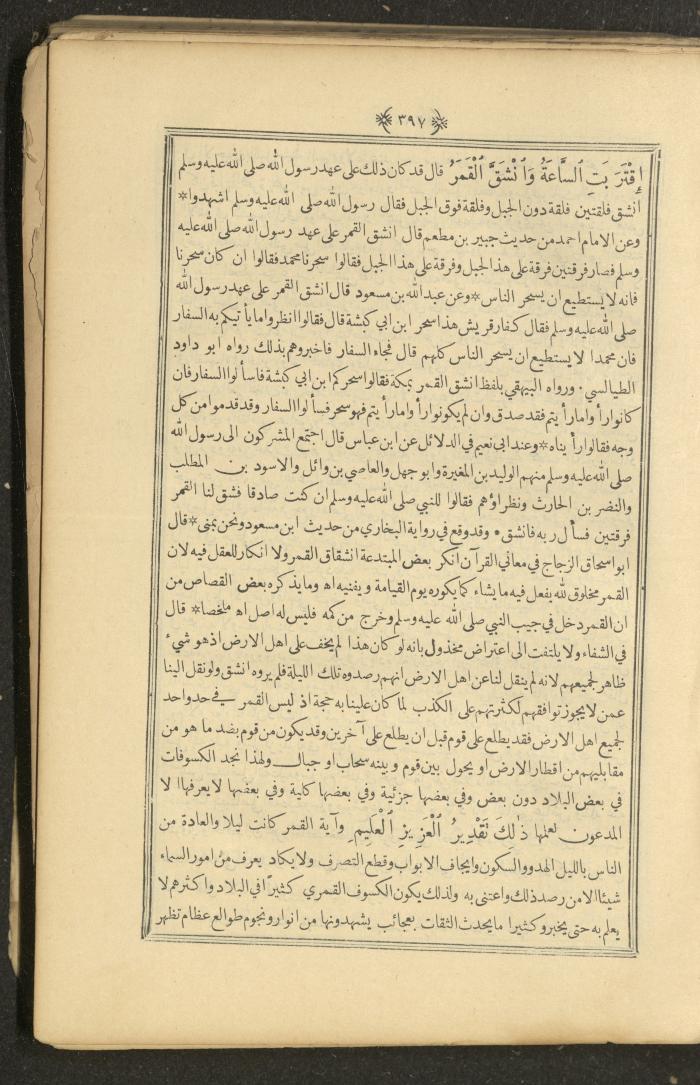 ٣٩٧
إِقْتَرَبَتِ ٱلسَّاعَةُ وَٱنْشَقَّ ٱلْقَمَرُ قال قد كان ذلك على عهد رسول الله صلى الله عليه وسلم
انشق فلقتين فلقة دون الجبل وفلقة فوق الجبل فقال رسول الله صلى الله عليه وسلم اشهدوا*
وعن الامام احمد من حديث جبير بن مطعم قال انشق القمر على عهد رسول الله صلى الله عليه
وسلم فصار فرقتين فرقة على هذا الجبل وفرقة على هذا الجبل فقالوا سحرنا محمد فقالوا ان كان سحرنا
فانه لا يستطيع ان يسحر الناس*وعن عبد الله بن مسعود قال انشق القمر على عهد رسول الله
صلى الله عليه وسلم فقال كفار قريش هذا سحر ابن ابي كبشة قال فقالوا انظروا ما يأتيكم به السفار
فان محمدا لا يستطيع ان يسحر الناس كلهم قال فجاء السفار فاخبروهم بذلك رواه ابو داود
الطيالسي. ورواه البيهقي بلفظ انشق القمر بمكة فقالوا سحركم ابن ابي كبشة فاسألوا السفار فان
كانوا رأوا ما رأيتم فقد صدق وان لم يكونوا رأوا ما رأيتم فهو سحر فسألوا السفار وقد قدموا من كل
وجه فقالوا رأيناه*وعند ابي نعيم في الدلائل عن ابن عباس قال اجتمع المشركون الى رسول الله
صلى الله عليه وسلم منهم الوليد بن المغيرة وابو جهل والعاصي بن وائل والاسود بن المطلب
والنضر بن الحارث ونظراؤهم فقالوا للنبي صلى الله عليه وسلم ان كنت صادقا فشق لنا القمر
فرقتين فسأل ربه فانشق. وقد وقع في رواية البخاري من حديث ابن مسعود ونحن بمنى*قال
ابو اسحاق الزجاج في معاني القرآن انكر بعض المبتدعة انشقاق القمر ولا انكار للعقل فيه لان
القمر مخلوق لله يفعل فيه ما يشاء كما يكوره يوم القيامة ويفنيه اه وما يذكره بعض القصاص من
ان القمر دخل في جيب النبي صلى الله عليه وسلم وخرج من كمه فليس له اصل اه ملخصا* قال
في الشفاء ولا يلتفت الى اعتراض مخذول بانه لو كان هذا لم يخف على اهل الارض اذ هو شيء
ظاهر لجميعهم لانه لم ينقل لنا عن اهل الارض انهم رصدوه تلك الليلة فلم يروه انشق ولو نقل الينا
عمن لا يجوز توافقهم لكثرتهم على الكذب لما كان علينا به حجة اذ ليس القمر في حد واحد
لجميع اهل الارض فقد يطلع على قوم قبل ان يطلع على آخرين وقد يكون من قوم بضد ما هو من
مقابليهم من اقطار الارض او يحول بين قوم وبينه سحاب او جبال ولهذا نجد الكسوفات
في بعض البلاد دون بعض وفي بعضها جزئية وفي بعضها كلية وفي بعضها لا يعرفها الا
المدعون لعلمها ذٰلِكَ تَقْدِيرُ ٱلْعَزِيزِ ٱلْعَلِيمِ وآية القمر كانت ليلا والعادة من
الناس بالليل الهدو والسكون وايجاف الابواب وقطع التصرف ولا يكاد يعرف من امور السماء
شيئا الا من رصد ذلك واعتنى به ولذلك يكون الكسوف القمري كثيرًا في البلاد واكثرهم لا
يعلم به حتى يخبر وكثيرا ما يحدث الثقات بعجائب يشهدونها من انوار ونجوم طوالع عظام تظهر